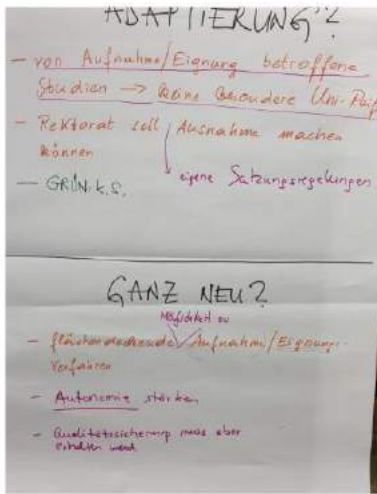 ADAPTIERUNG?
- von Aufnahme/Eignung betroffene
Studien → keine besondere Uni-Reif
- Rektorat soll Ausnahme machen
können
→ eigene Satzungsregelungen
- GRÜN: k.S.
GANZ NEU?
Möglichkeit zu
- flächendeckende Aufnahme/Eignungs-
verfahren
- Autonomie stärken
- Qualitätssicherung muss aber
erhalten